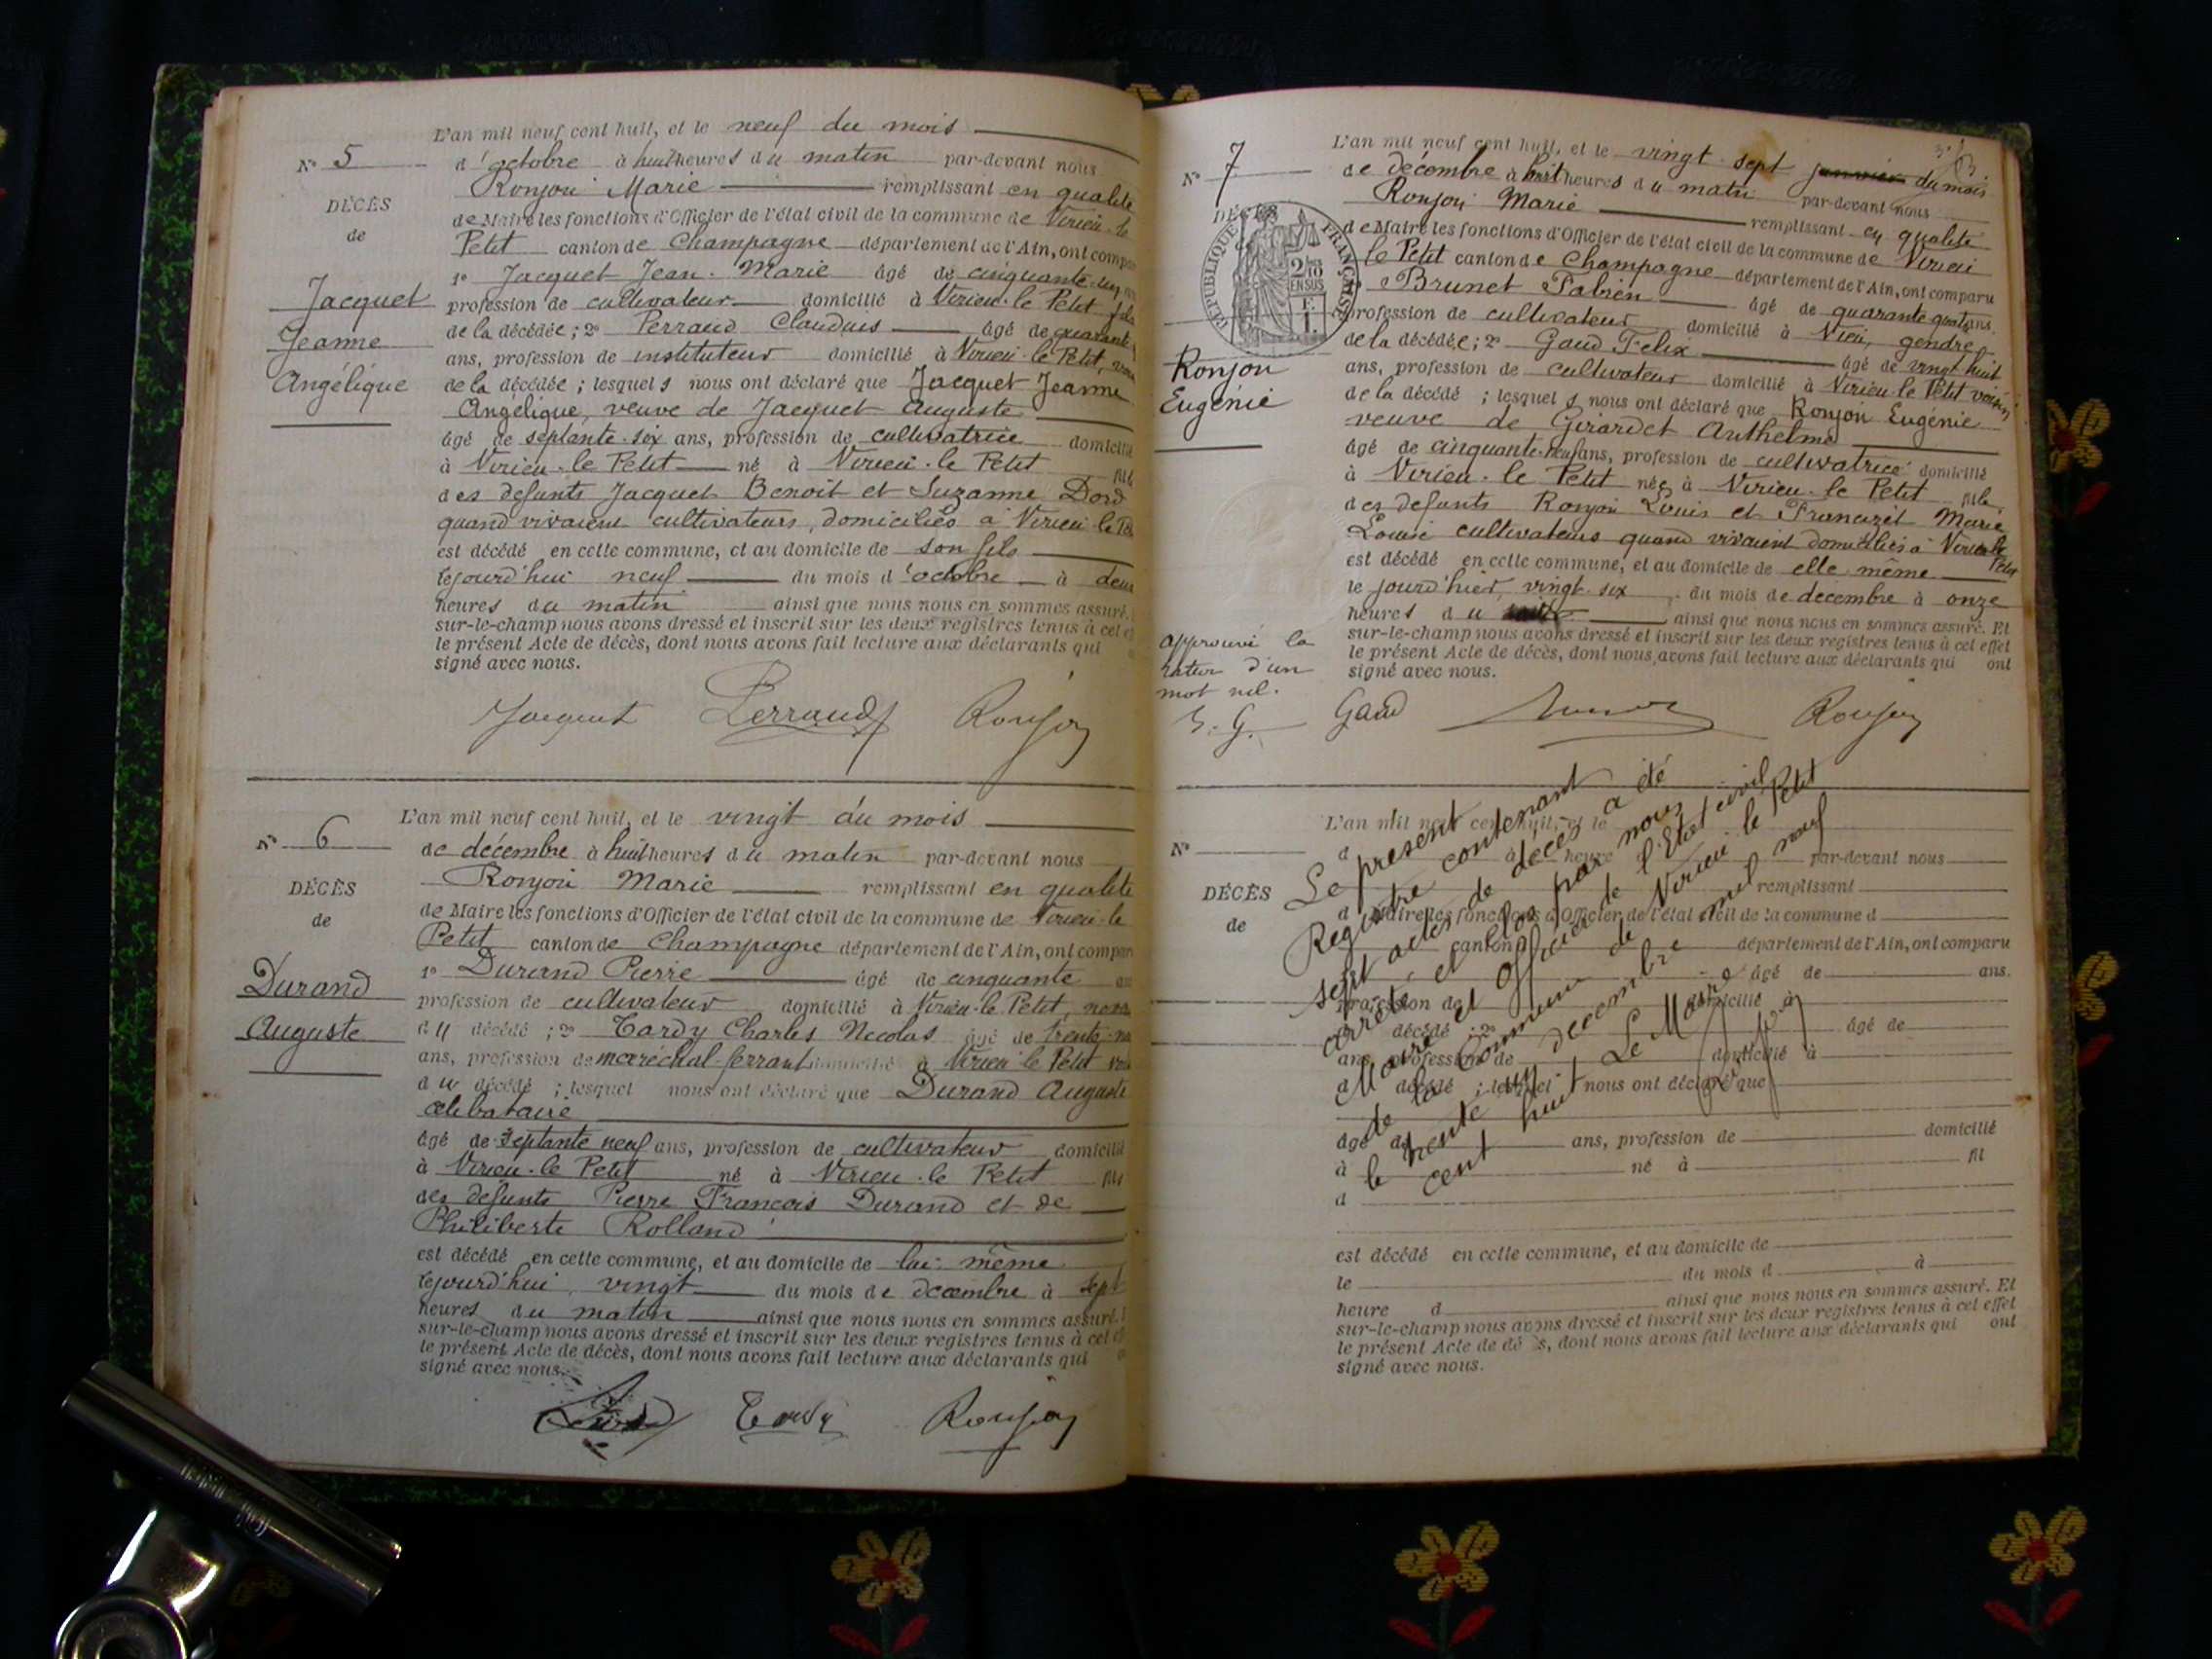 L'an mil neuf cent huit, et le neuf du mois
N° 5
d'octobre à huit heures du matin par-devant nous
Ronjon Marie remplissant en qualité
DÉCÈS
de Maire les fonctions d'Officier de l'état civil de la commune de Virieu-le
de
Petit canton de Champagne département de l'Ain, ont compa
1° Jacquet Jean-Marie âgé de cinquante-un
Jacquet
profession de cultivateur domicilié à Virieu-le Petit fils
de la décédée; 2° Perraud Claudius âgé de quarante
Jeanne
ans, profession de instituteur domicilié à Virieu-le Petit,
Angélique
de la décédée; lesquels nous ont déclaré que Jacquet Jeanne
Angélique, veuve de Jacquet Auguste
âgé de septante-six ans, profession de cultivatrice domicilié
à Virieu-le Petit né à Virieu-le Petit fille
des defunts Jacquet Benoit et Suzanne Dord
quand vivaient cultivateurs, domiciliés à Virieu le
est décédé en cette commune, et au domicile de son fils
lejourd'hui neuf du mois d'octobre à deux
heures du matin ainsi que nous nous en sommes assuré.
sur-le-champ nous avons dressé et inscrit sur les deux registres tenus à cet
le présent Acte de décès, dont nous avons fait lecture aux déclarants qui
signé avec nous.
Jacquet Perraud Ronjon
L'an mil neuf cent huit, et le vingt du mois
N° 6
de décembre à huit heures du matin par-devant nous
Ronjon Marie remplissant en qualité
DÉCÈS
de Maire les fonctions d'Officier de l'état civil de la commune de Virieu-le
de
Petit canton de Champagne département de l'Ain, ont compar
1° Durand Pierre âgé de cinquante
Durand
profession de cultivateur domicilié à Virieu-le Petit,
Auguste
du décédé; 2° Tardy Charles Nicolas âgé de trente
ans, profession de maréchal-ferrant domicilié à Virieu le Petit
du décédé; lesquel nous ont déclaré que Durand Auguste
célibataire
âgé de septante neuf ans, profession de cultivateur domicilié
à Virieu-le Petit né à Virieu-le Petit fils
des defunts Pierre François Durand et de
Philiberte Rolland
est décédé en cette commune, et au domicile de lui-même
lejourd'hui, vingt du mois de decembre à sept
heures du matin ainsi que nous nous en sommes assuré.
sur-le-champ nous avons dressé et inscrit sur les deux registres tenus à cet
le présent Acte de décès, dont nous avons fait lecture aux déclarants qui
signé avec nous.
Durand Tardy Ronjon
L'an mil neuf cent huit, et le vingt-sept janvier du mois
N° 7
de décembre à huit heures du matin par-devant nous
Ronjon Marie remplissant en qualité
DÉCÈS
RÉPUBLIQUE FRANÇAISE
de Maire les fonctions d'Officier de l'état civil de la commune de Virieu
le Petit canton de Champagne département de l'Ain, ont comparu
Brunet Fabien âgé de quarante quatre ans.
profession de cultivateur domicilié à Vieu, gendre
de la décédée; 2° Gaud Felix âgé de vingt huit
Ronjon
ans, profession de cultivateur domicilié à Virieu-le Petit voisin
Eugénie
de la décédé; lesquels nous ont déclaré que Ronjon Eugénie
veuve de Girardet Anthelme
âgé de cinquante-neuf ans, profession de cultivatrice domicilié
à Virieu-le Petit née à Virieu-le Petit fille
des defunts Ronjon Louis et Francizet Marie
Louise cultivateurs quand vivaient domiciliés à Virieu le
Petit
est décédé en cette commune, et au domicile de elle même
le jourd'hier, vingt-six du mois de décembre à onze
heures du ainsi que nous nous en sommes assuré. Et
sur-le-champ nous avons dressé et inscrit sur les deux registres tenus à cet effet
le présent Acte de décès, dont nous avons fait lecture aux déclarants qui ont
signé avec nous.
Approuvé la
rature d'un
mot nul.
Gaud Brunet Ronjon
L'an mil neuf cent huit, et le
N°
d à heure par-devant nous
remplissant
DÉCÈS
d Maire les fonctions d'Officier de l'état civil de la commune d
de
canton d département de l'Ain, ont comparu
âgé de ans.
profession de domicilié à
décédé; 2° âgé de
ans, profession de domicilié à
d décédé; lesquel nous ont déclaré que
âgé de ans, profession de domicilié
à né à fil
d
est décédé en cette commune, et au domicile de
le du mois d à
heure d ainsi que nous nous en sommes assuré. Et
sur-le-champ nous avons dressé et inscrit sur les deux registres tenus à cet effet
le présent Acte de décès, dont nous avons fait lecture aux déclarants qui ont
signé avec nous.
Le présent
Registre contenant
sept actes de décès a été
arrêté et clos par nous
Maire et Officier de l'Etat civil
de la commune de Virieu le Petit
le trente un décembre mil neuf
cent huit Le Maire
Ronjon